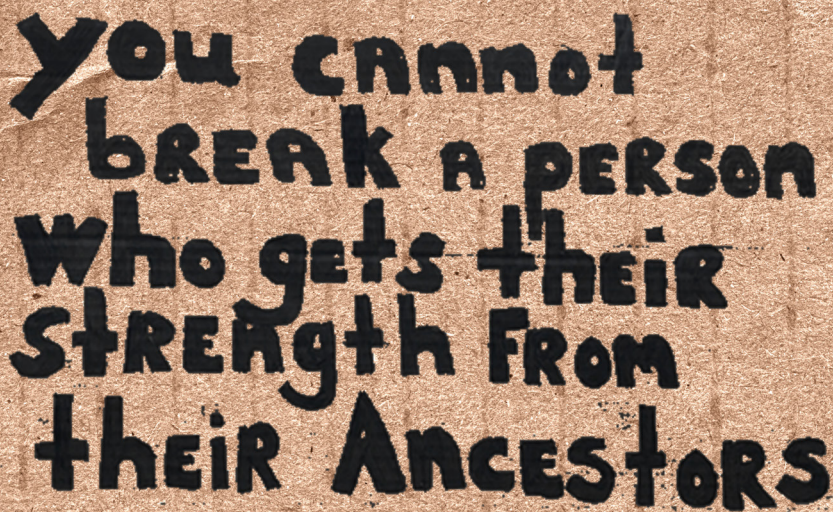 you cannot
bREAk A pERson
who gets theiR
stREngth FRom
theiR AncEstoRs